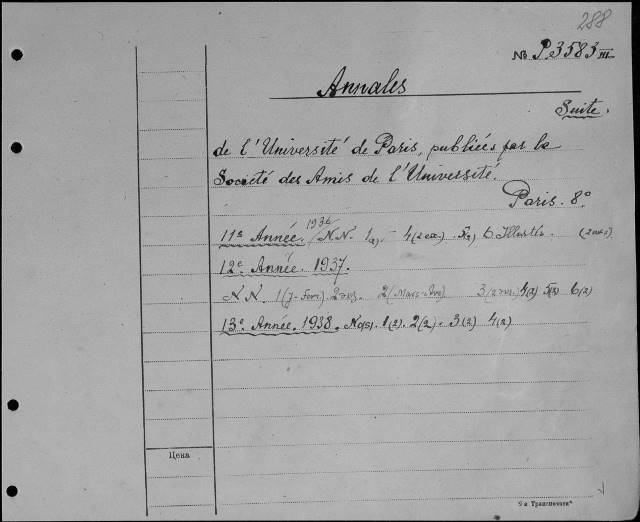 288
№ P.3583 III
Annales
Suite.
de l'Université de Paris, publiées par la
Société des Amis de l'Université.
Paris. 8º
11e Année. 1936 NN. 4(2 экз.) 6 Illustr.
12e Année. 1937.
NN. 1(J-Fevr). 2 экз. 2(Mars-Avr) 3(2 экз.) 4(2) 5(2) 6(2)
13e Année. 1938. №(s). 1(2). 2(2). 3(2) 4(2)
Цена
9-я Транспечать